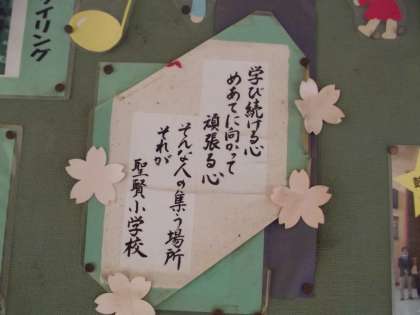 学び続ける心
めあてに向かって
頑張る心
そんな人の集う場所
それが
聖賢小学校
イリング